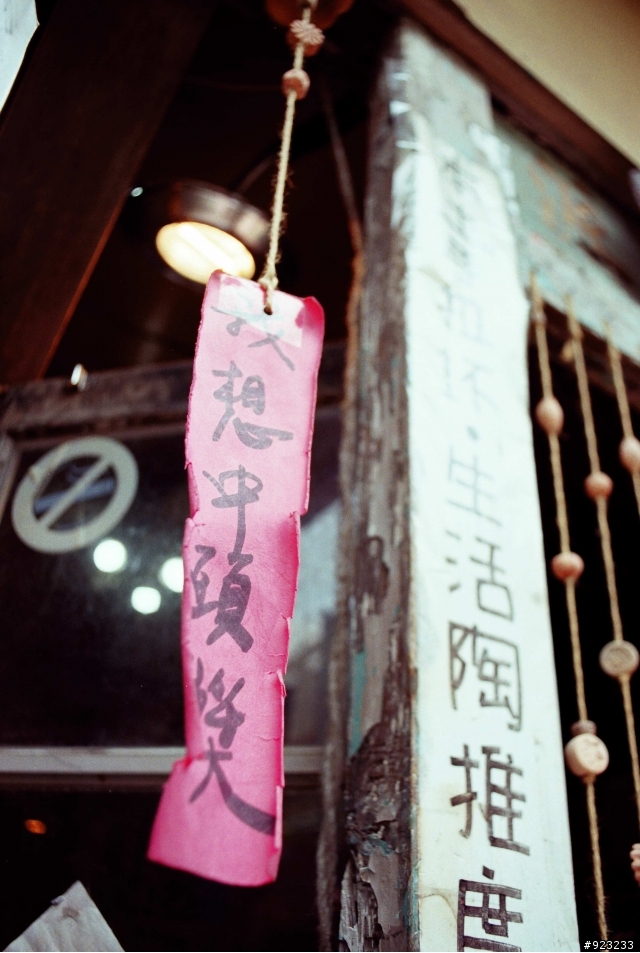 我想中頭獎
生活陶推度
#923233